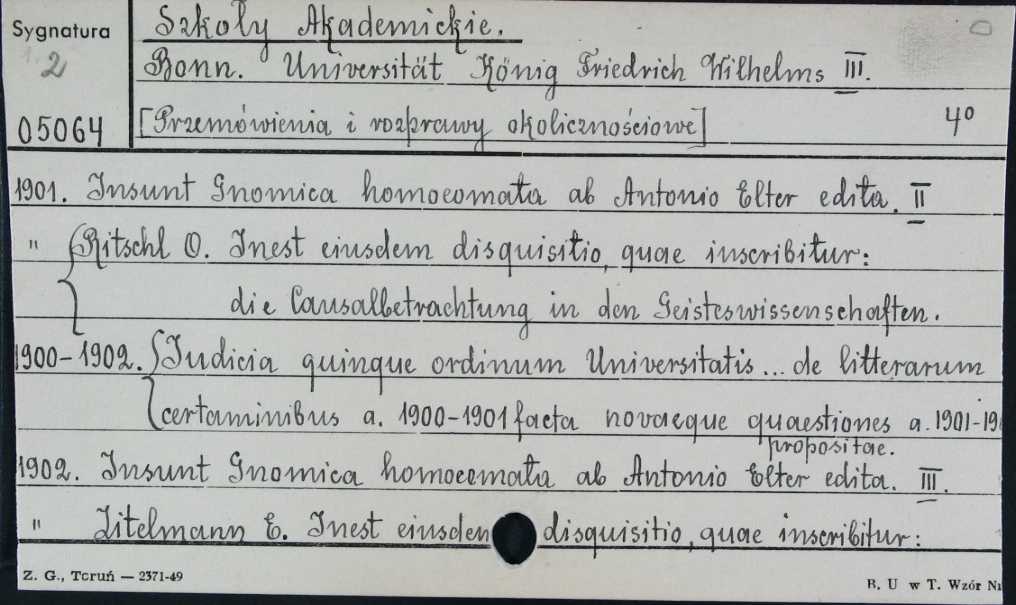 Sygnatura
1.2
05064
Szkoły Akademickie.
Bonn. Universität König Friedrich Wilhelms III.
[Przemówienia i rozprawy okolicznościowe] 4°
1901. Insunt Gnomica homoeomata ab Antonio Elter edita. II
" Ritschl O. Inest eiusdem disquisitio, quae inscribitur:
die Causalbetrachtung in den Geisteswissenschaften.
1900-1902. Judicia quinque ordinum Universitatis... de litterarum
certaminibus a. 1900-1901 facta novaeque quaestiones a. 1901-19
propositae.
1902. Insunt Gnomica homoeomata ab Antonio Elter edita. III.
" Zitelmann E. Inest eiusdem disquisitio, quae inscribitur:
Z. G., Toruń — 2371-49
B. U w T. Wzór Nr